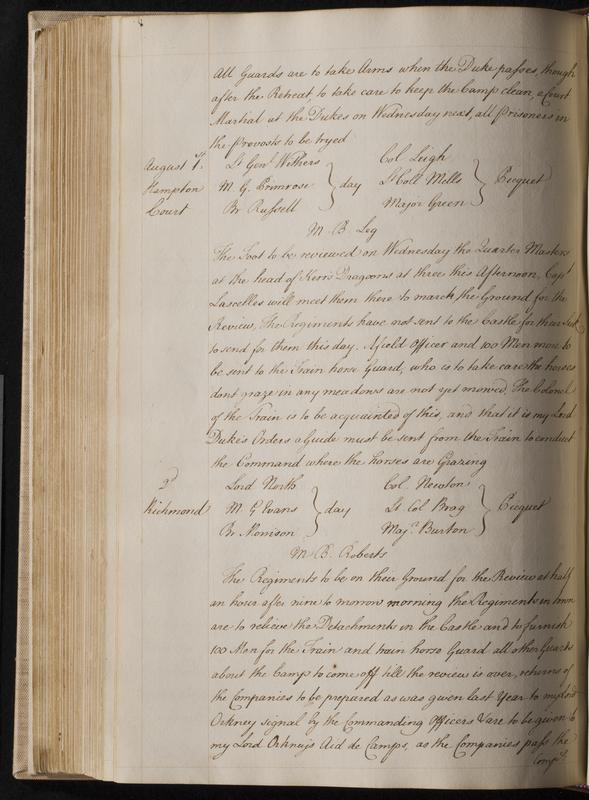 All Guards are to take Arms when the Duke passes, though
after the Retreat, to take care to keep the Camp clean, a Court
Martial at the Dukes on Wednesday next, all Prisoners in
the Provosts to be tryed
August 1st. Lt Genl Withers Col. Leigh
Hampton M. G. Primrose } day Lt Coll Mells } Picquet
Court Br Russell Major Green
M. B. Leg
The Foot to be reviewed on Wednesday the Quarter Masters
at the head of Kerr's Dragoons at three this Afternoon, Capt
Lascelles will meet them there to march the Ground for the
Review, The Regiments have not sent to the Castle for their Sick
to send for them this day. A field Officer and 100 Men more to
be sent to the Train horse Guard, who is to take care the horses
dont graze in any meadows are not yet mowed. The Colonel
of the Train is to be acquainted of this, and that it is my Lord
Duke's Orders a Guide must be sent from the Train to conduct
the Command where the horses are Grazing
2d Lord North Col. Newton
Richmond M. G. Evans } day Lt. Col Brag } Picquet
Br Morrison Majr. Burton
M. B. Roberts
The Regiments to be on their Ground for the Review at half
an hour after nine to morrow morning the Regiments in town
are to relieve the Detachments in the Castle and to furnish
100 Men for the Train and train horse Guard all other Guards
about the Camp to come off till the review is over, returns of
the Companies to be prepared as was given last Year to my Lord
Orkney signal by the Commanding Officers & are to be given to
my Lord Orkneys Aid de Camps, as the Companies pass the
Compy.